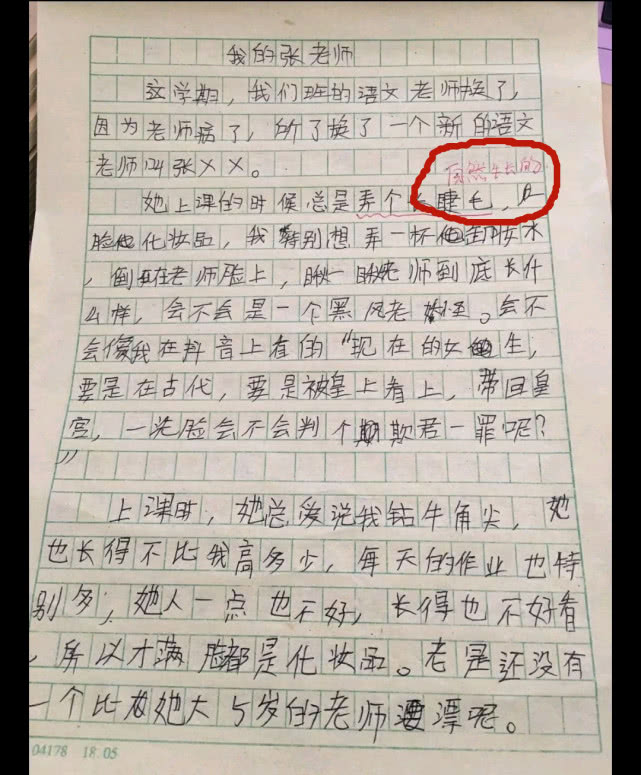 我的张老师
这学期，我们班的语文老师换了，
因为老师病了，所了换了一个新的语文
老师叫张XX。
自然生长的
她上课的时候总是弄个长睫毛，一
脸化妆品，我特别想弄一杯卸妆水
，倒在老师脸上，瞅一瞅老师到底长什
么样，会不会是一个黑风老妖怪。会不
会像我在抖音上看的“现在的女生，
要是在古代，要是被皇上看上，带回皇
宫，一洗脸会不会判个欺君一罪呢？
”
上课时，她总爱说我钻牛角尖，她
也长得不比我高多少，每天的作业也特
别多，她人一点也不好，长得也不好看
，所以才满脸都是化妆品。老是还没有
一个比她大5岁的老师漂呢。
04178 18.05